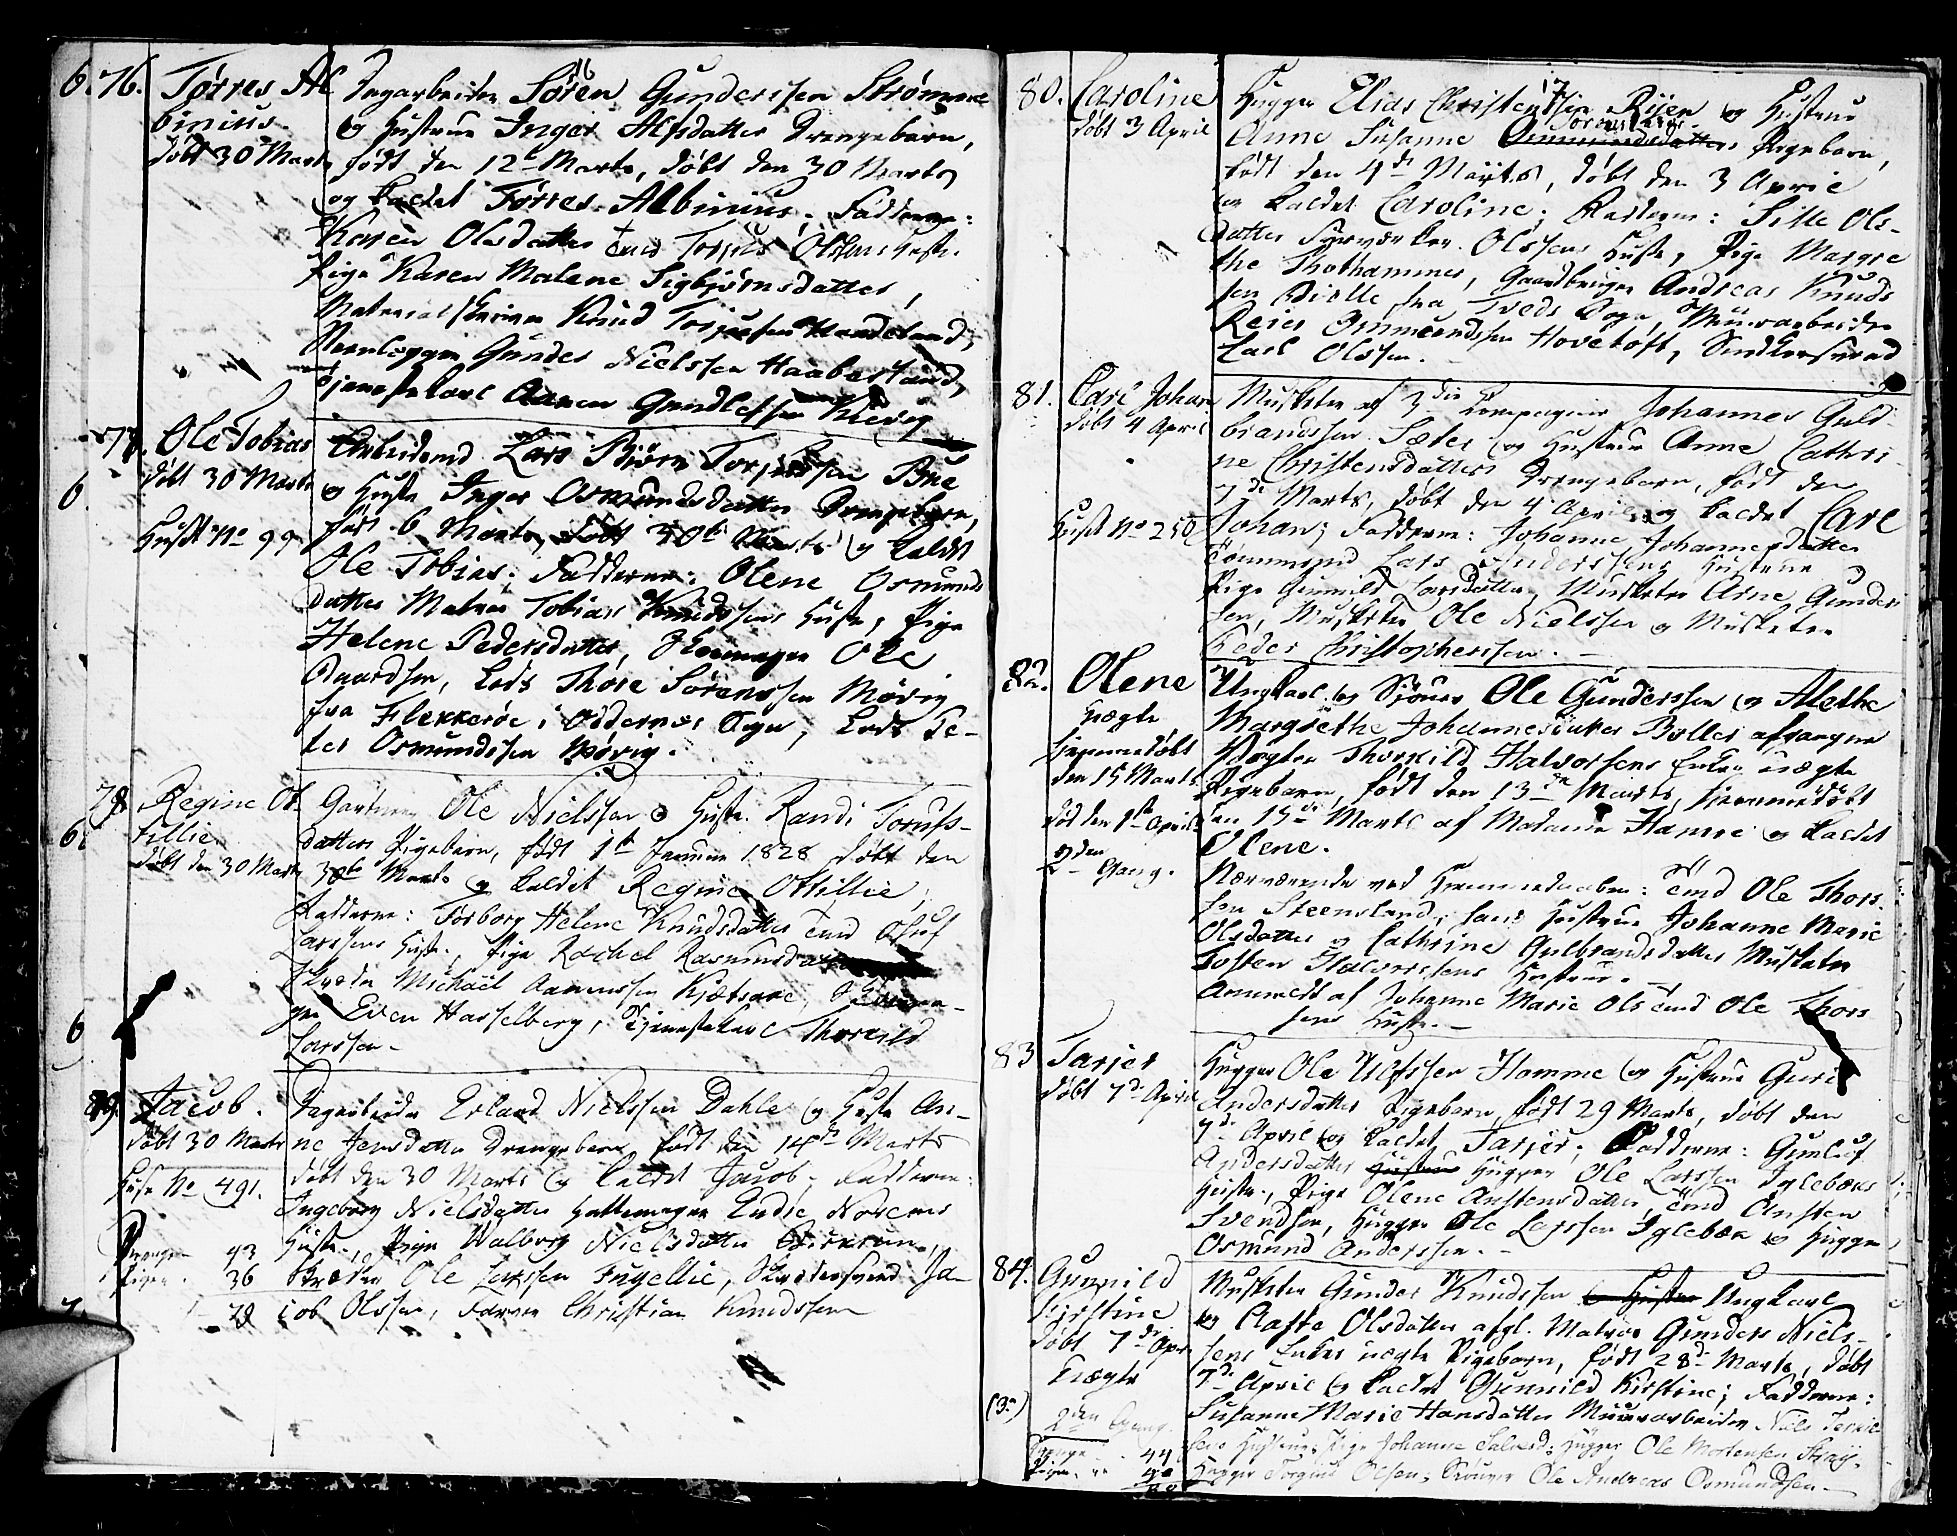 16
6. 76. Tørres Al
binius
døbt 30 Marts
Dagarbeider Søren Gunderssen Strømme
og Hustrue Inger Alfsdatter Drengebarn,
født den 12te Marts, døbt den 30 Marts
og kaldet Tørres Albinius; Fadderne:
Karen Olesdatter Tømd Torjus Olsens Hust.
Pige Karen Malene Sigbjørnsdatter,
Materialskriver Knud Torjussen Haaeland,
Gunder Nielssen Haabestand,
Tjenestekarl Aanen Gundlefsen
6. 77. Ole Tobias
døbt 30 Marts
Huset No 99
Arbeidsmd Lars Bjørn Torjussen Bue
og Hustr Inger Osmundsdatter Drengebarn,
født 6 Marts, døbt 30te Marts og kaldt
Ole Tobias; Fadderne: Olene Osmunds
datter Matros Tobias Knudssens Hustr, Pige
Helene Pedersdatter, Skomager Ole
Baardsen, Lods Thore Sørenssen Møvig
fra Flekkerøe i Oddernes Sogn, Lods Pe-
ter Osmundssen Møvig.
6. 78 Regine Ot
tillie
døbt den 30 Marts
Gartner Ole Nielssen og Hustr. Randi Torufs-
datters Pigebarn, født 1te Januar 1828 døbt den
30te Marts og kaldet Regine Ottillie;
Fadderne: Torborg Helene Knudsdatter Tømd Oluf
Larssens Hustr., Pige Rachel Rasmusdatter
Skræder Michael Aanenssen Kjætsaae, Skoma-
ger Even Hasselberg, Tjenestekarl Thorkild
Larssen-
6
79. Jacob.
døbt 30 Marts
Huse No 491.
Drenge 43
Piger 36
79
Dagarbeider Erland Nielssen Dahle og Hustr An-
ne Jensdatter Drengebarn født den 14de Marts
døbt den 30 Marts og kaldet Jacob; Fadderne:
Ingeborg Nielsdatter Hattemager Endre Norems
Hustr., Pige Walborg Nielsdatter
Skræder Ole Larssen Fugellie, Skrædersvend Ja-
cob Olssen, Farver Christian Knudssen
7.
17
80. Caroline
døbt 3 April
Hugger Elias Christenssen Risen og Hustrue
Anne Susanne Ommundsdatters Pigebarn,
født den 4de Marts, døbt den 3 April
og kaldet Caroline; Fadderne: Sille Ols-
datter Olssens Hustr, Pige Margre
the Thothammer, Gaardbruger Andreas Knuds
sen Bielle fra Tveds Sogn, Muurarbeider
Reier Ommundssen Hovetoft,
Carl Olssen.
81. Carl Johan
døbt 4 April
Huset No 250
Musketer af 3die Compagnie Johannes Guld-
brandssen Sæter og Hustrue Anne Cathri-
ne Christensdatters Drengebarn, født den
7de Marts, døbt den 4 April og kaldet Carl
Johan; Fadderne: Johanne Johannesdatter
Tømmermd Lars Anderssens Hustrue
Pige Gunnild Larsdatter, Musketer Arne Gunders
sen, Musketer Ole Nielssen og Musketer
Peder Christopherssen.-
82. Olene
uægte
hjemmedøbt
den 15 Marts
død den 1te April
2den Gang.
Ungkarl og Sjømd Ole Gunderssen og Alethe
Margrethe Johannesdatter Boller afgangne
Thorkild Halvorssens Enkes uægte
Pigebarn, født den 13de Marts, hjemmedøbt
den 15de Marts af Madame Hamre og kaldet
Olene.
Nærværende ved Hjemmedaaben: Tømd Ole Thors
sen Steensland, hans Hustrue Johanne Marie
Olsdatter og Cathrine Gulbrandsdatter Musketer
Tosten Halvorssens Hustrue.
Anmeldt af Johanne Marie Ols Tømd Ole Thors
sens Hustr.-
83 Tarjer
døbt 7de April
Hugger Ole Ulfssen Homme og Hustrue Guri
Andersdatters Pigebarn, født 29 Marts, døbt den
7de April og kaldet Tarjer; Fadderne: Gunluf
Andersdatter Hustrue Hugger Ole Larssen Iglebæks
Hustr., Pige Olene Anstensdatter, Tømd Ansten
Svendsen, Hugger Ole Larssen Iglebæk og Hugger
Osmund Anderssen.-
84. Gunnild
Kirstine
døbt 7de Apr
Uægte
(3.) 2den Gang.
Drenge 44
Musketer Gunder Knudssen og Hustrue Ungkarl
og Aaste Olsdatter afgl. Matros Gunders Niels-
sens Enkes uægte Pigebarn, født 28de Marts, døbt
7de April og kaldet Gunnild Kirstine; Fadderne:
Susanne Marie Hansdatter Muurarbeider Niels Terkil
sens Hustrue, Pige Johanne Salveds: Hugger Ole Mortensen Kraj-
Hugger Torgius Olsen; Skouger Ole Andreas Osmundsen.-